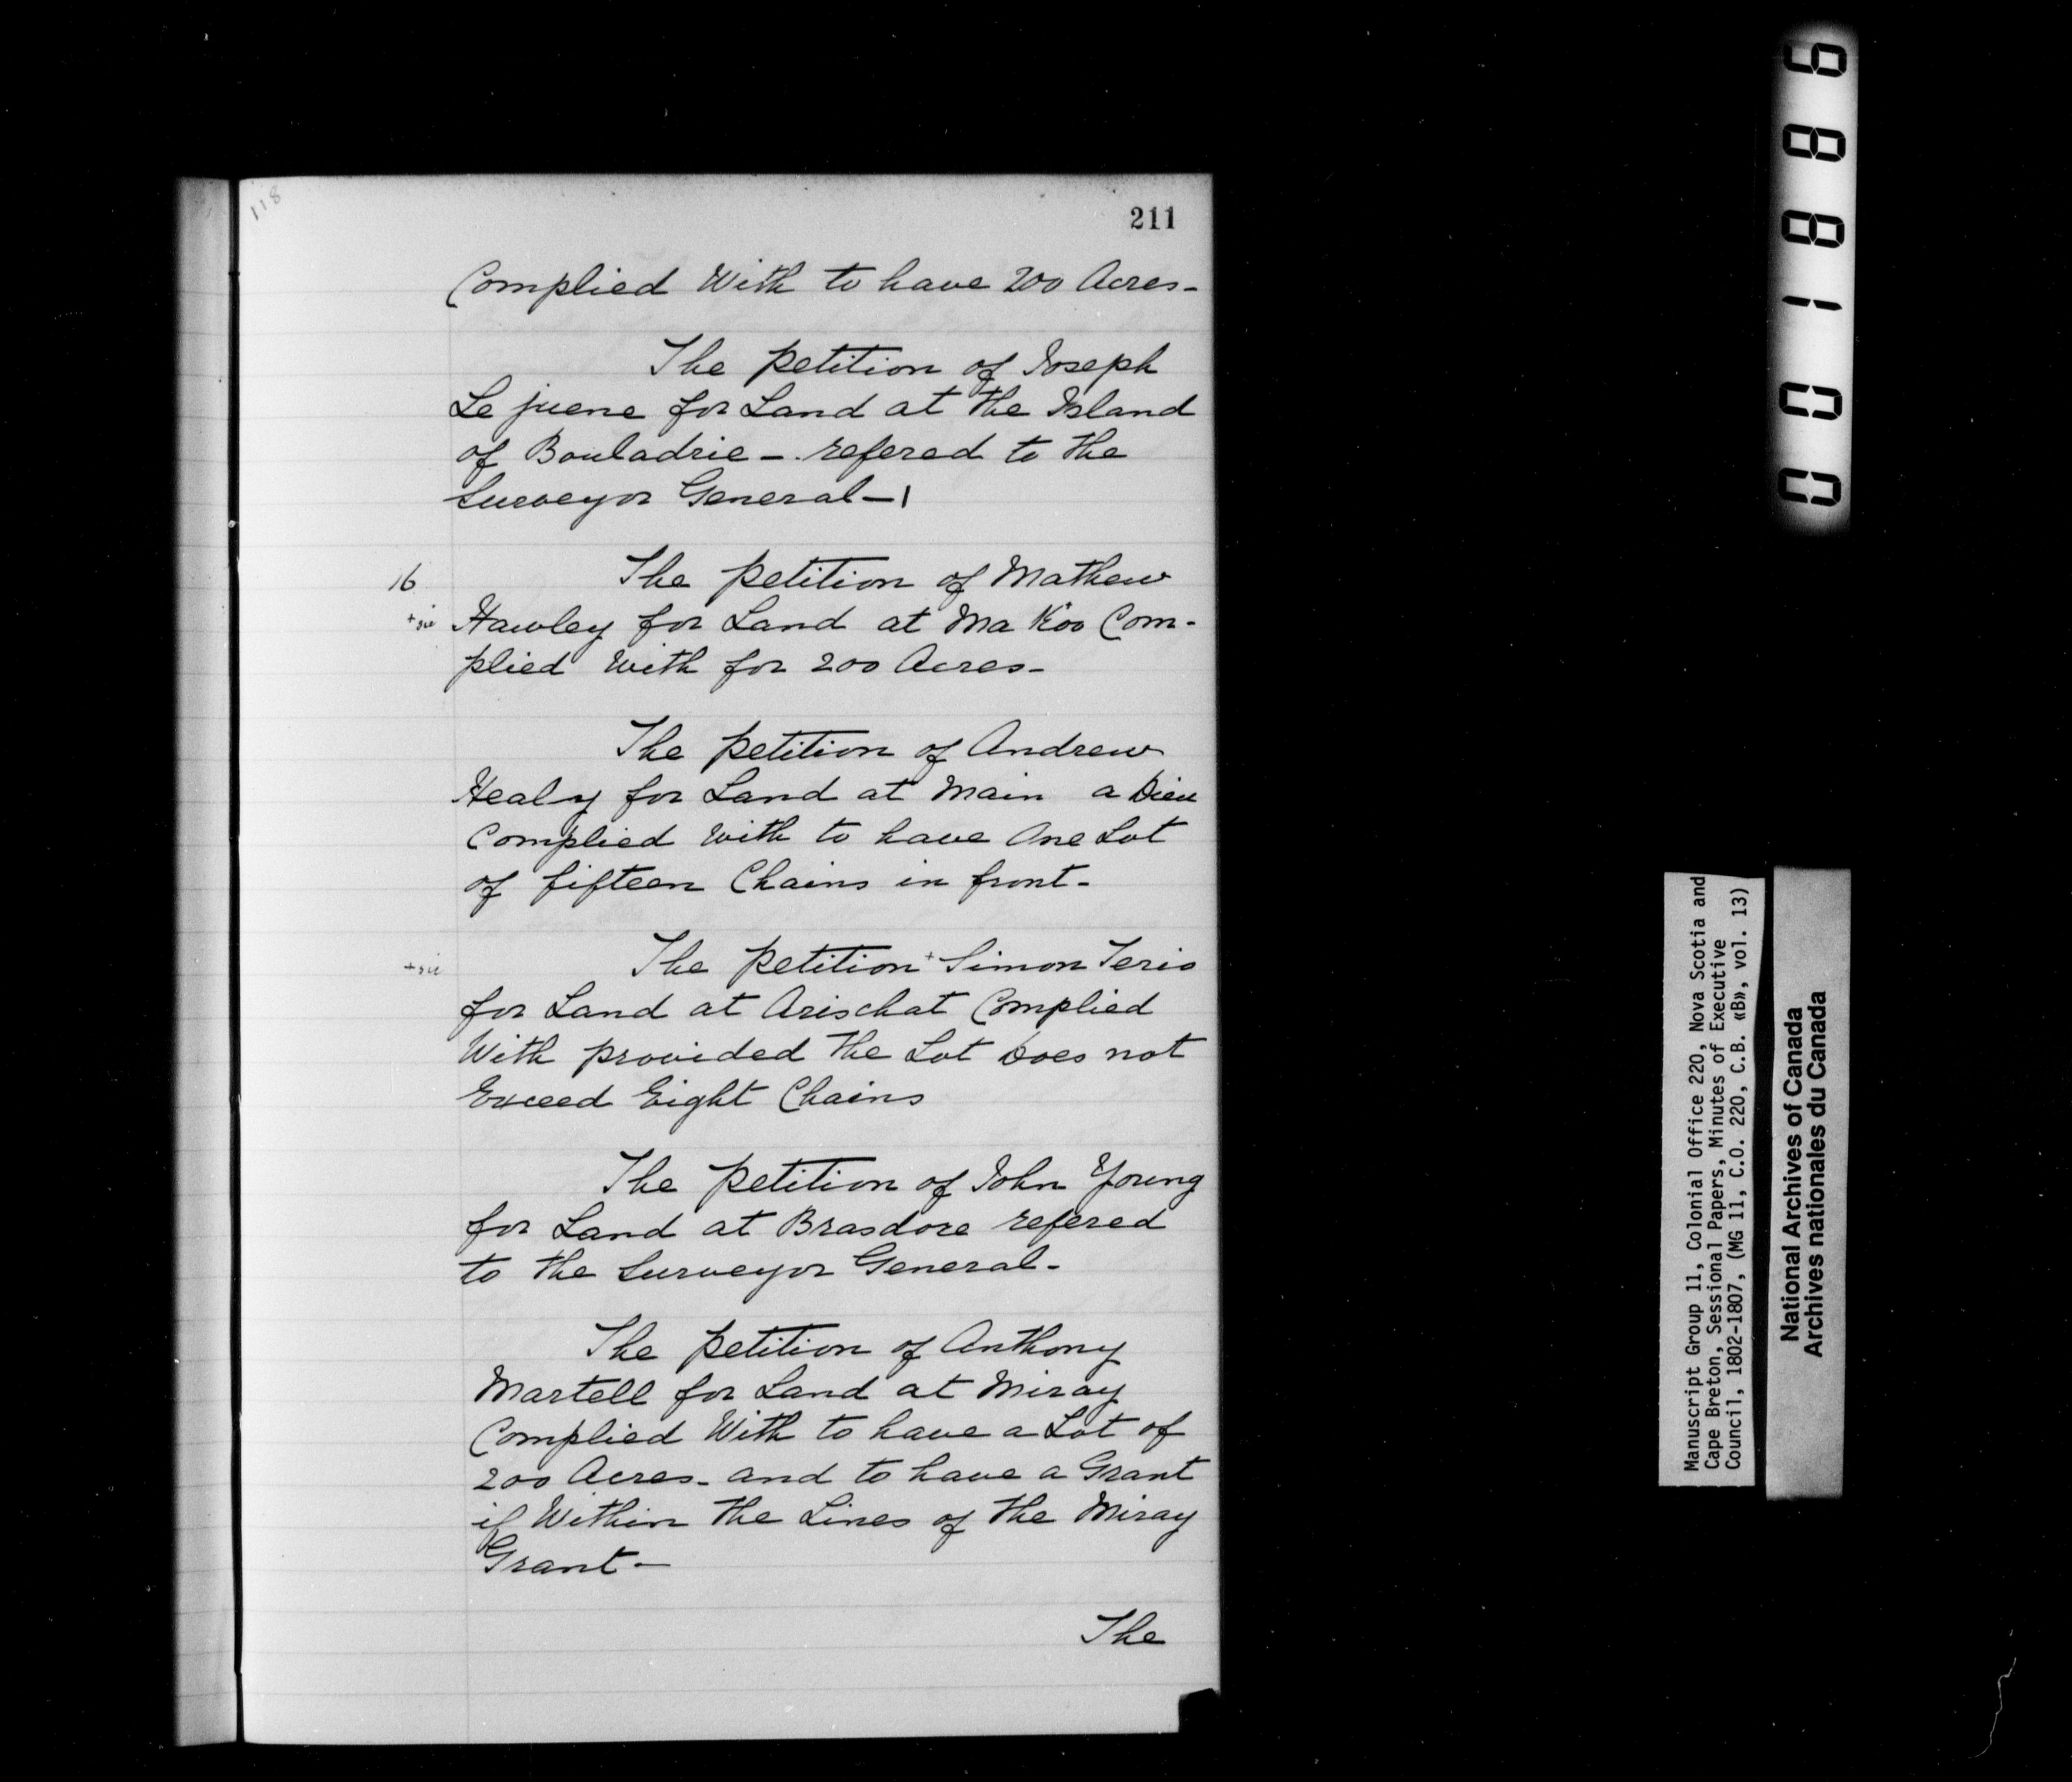 118
211
Complied With to have 200 Acres-
The petition of Joseph
Le juene for Land at the Island
of Bouladrie - refered to the
Surveyor General-
16
The petition of Mathew
+ sic
Hawley for Land at Ma Koo + Com-
plied With for 200 Acres-
The petition of Andrew
Healy for Land at Main a Dieu
Complied With to have One Lot
of fifteen Chains in front-
+ sic
The petition + Simon Terio
for Land at Arischat Complied
With provided the Lot Does not
Exceed Eight Chains
The petition of John Young
for Land at Brasdore refered
to the Surveyor General-
The petition of Anthony
Martell for Land at Miray
Complied With to have a Lot of
200 Acres- and to have a Grant
if Within the Lines of the Miray
Grant-
The
001886
Manuscript Group 11, Colonial Office 220, Nova Scotia and
Cape Breton, Sessional Papers, Minutes of Executive
Council, 1802-1807, (MG 11, C.O. 220, C.B. «B», vol. 13)
National Archives of Canada
Archives nationales du Canada